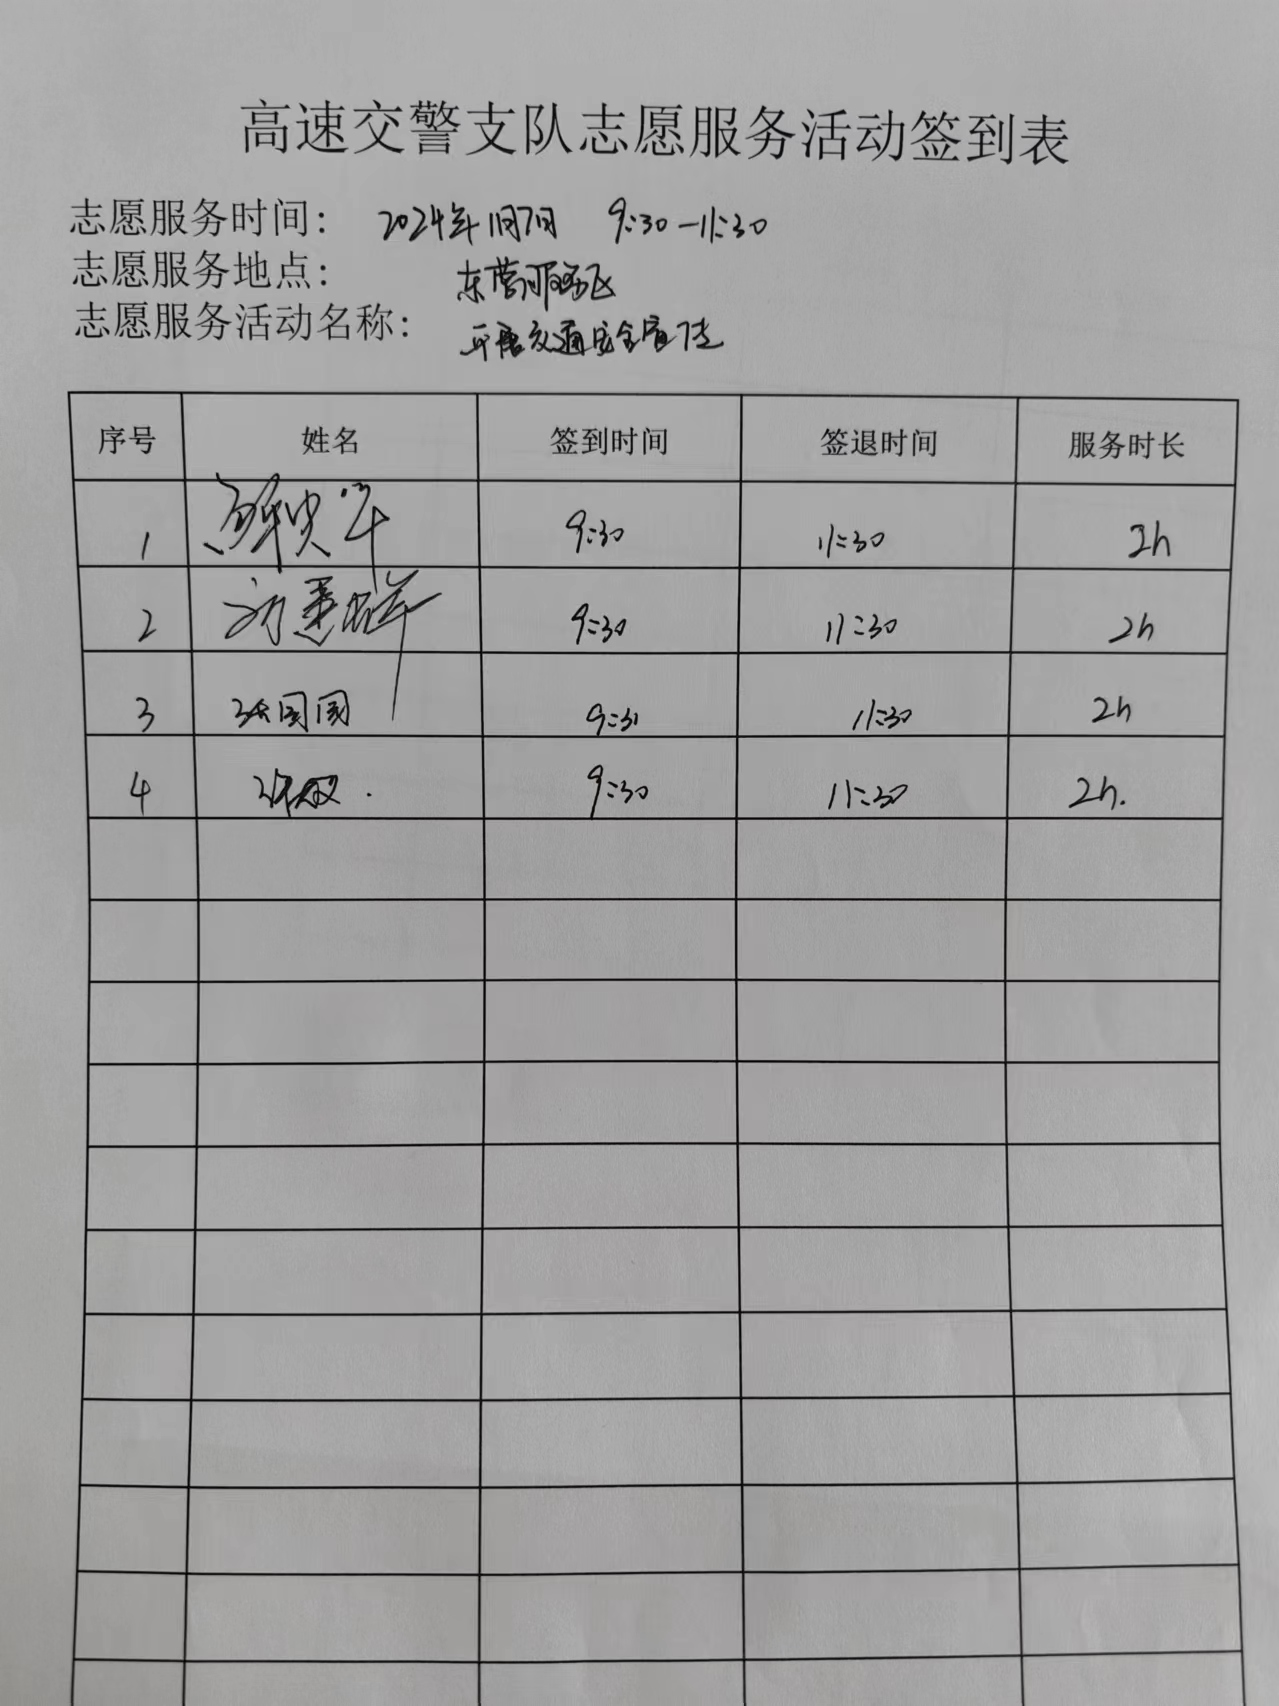 高速交警支队志愿服务活动签到表
志愿服务时间： 2024年1月7日 9:30-11:30
志愿服务地点： 东营服务区
志愿服务活动名称： 平安交通安全宣传
序号 姓名 签到时间 签退时间 服务时长
1 9:30 11:30 2h
2 刘 9:30 11:30 2h
3 张国国 9:30 11:30 2h
4 9:30 11:30 2h.